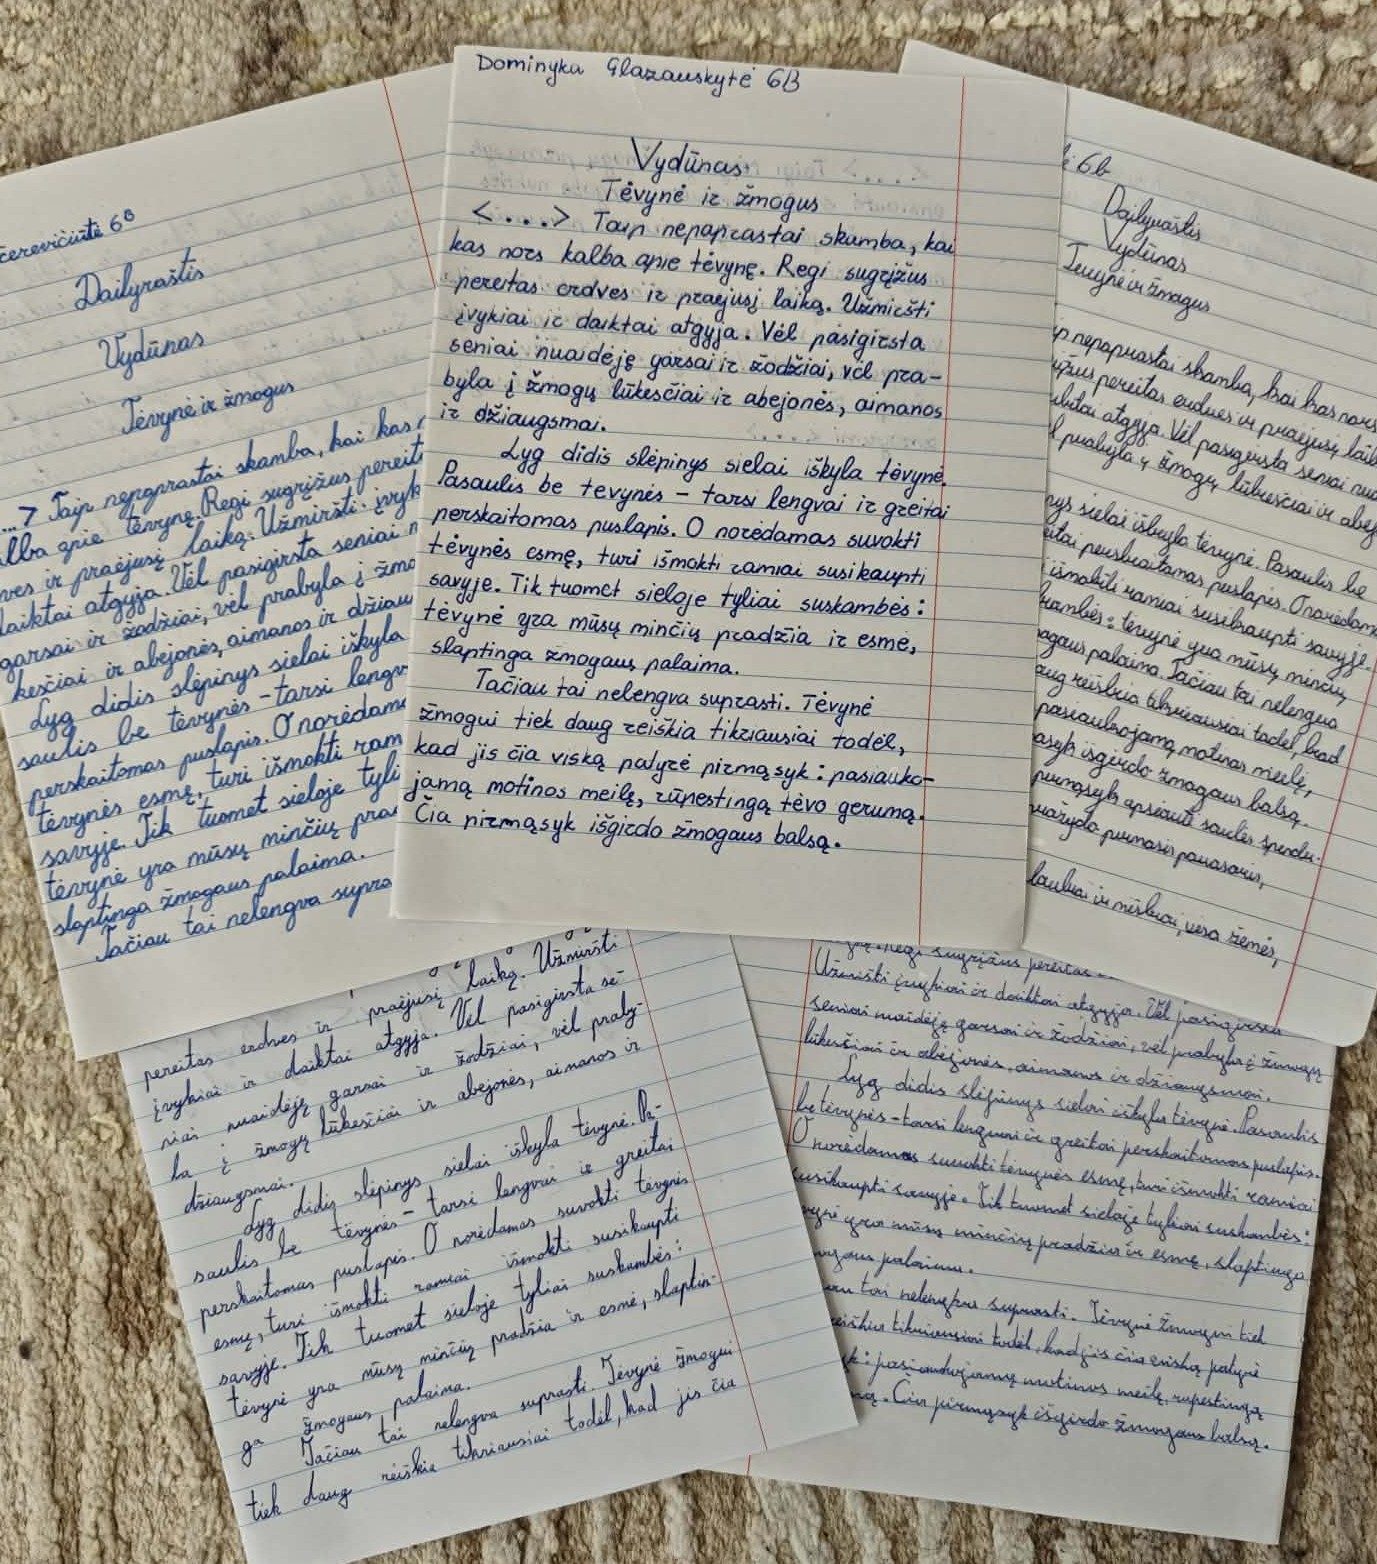 Dominyka Glazauskytė 6B
Vydūnas
Tėvynė ir žmogus
<...> Taip nepaprastai skamba, kai
kas nors kalba apie tėvynę. Regi sugrįžus
pereitas erdves ir praėjusį laiką. Užmiršti
įvykiai ir daiktai atgyja. Vėl pasigirsta
seniai nuaidėję garsai ir žodžiai, vėl pra-
byla į žmogų lūkesčiai ir abejonės, aimanos
ir džiaugsmai.
Lyg didis slėpinys sielai iškyla tėvynė.
Pasaulis be tėvynės - tarsi lengvai ir greitai
perskaitomas puslapis. O norėdamas suvokti
tėvynės esmę, turi išmokti ramiai susikaupti
savyje. Tik tuomet sieloje tyliai suskambės:
tėvynė yra mūsų minčių pradžia ir esmė,
slaptinga žmogaus palaima.
Tačiau tai nelengva suprasti. Tėvynė
žmogui tiek daug reiškia tikriausiai todėl,
kad jis čia viską patyrė pirmąsyk: pasiauko-
jamą motinos meilę, rūpestingą tėvo gerumą.
Čia pirmąsyk išgirdo žmogaus balsą.
6B
Dailyraštis
Vydūnas
Tėvynė ir žmogus
...> Taip nepaprastai skamba, kai kas
apie tėvynę. Regi sugrįžus
ir praėjusį laiką. Užmiršti
daiktai atgyja. Vėl pasigirsta seniai
garsai ir žodžiai, vėl prabyla į
kesčiai ir abejonės, aimanos ir
Lyg didis slėpinys sielai iškyla
saulis be tėvynės - tarsi
perskaitomas puslapis. O
tėvynės esmę, turi išmokti
savyje. Tik tuomet sieloje
tėvynė yra mūsų minčių
slaptinga žmogaus palaima.
Tačiau tai nelengva
6b
Dailyraštis
Vydūnas
Tėvynė ir žmogus
nepaprastai skamba, kai kas nors
pereitas erdves ir praėjusį
atgyja. Vėl pasigirsta seniai
prabyla į žmogų lūkesčiai ir
sielai iškyla tėvynė. Pasaulis be
perskaitomas puslapis. O
išmokti ramiai susikaupti savyje.
tėvynė yra mūsų minčių
palaima. Tačiau tai nelengva
reiškia tikriausiai todėl, kad
motinos meilę,
išgirdo žmogaus balsą.
pirmąsyk saulės
pirmasis pavasaris,
laukai ir miškai, visa žemės,
pereitas erdves ir praėjusį laiką. Užmiršti
įvykiai ir daiktai atgyja. Vėl pasigirsta se-
niai nuaidėję garsai ir žodžiai, vėl praby-
la į žmogų lūkesčiai ir abejonės, aimanos ir
džiaugsmai.
Lyg didis slėpinys sielai iškyla tėvynė. Pa-
saulis be tėvynės - tarsi lengvai ir greitai
perskaitomas puslapis. O norėdamas suvokti tėvynės
esmę, turi išmokti ramiai susikaupti
savyje. Tik tuomet sieloje tyliai suskambės:
tėvynė yra mūsų minčių pradžia ir esmė, slaptin-
ga žmogaus palaima.
Tačiau tai nelengva suprasti. Tėvynė žmogui
tiek daug reiškia tikriausiai todėl, kad jis čia
sugrįžus pereitas
Užmiršti įvykiai ir daiktai atgyja. Vėl pasigirsta
seniai nuaidėję garsai ir žodžiai, vėl prabyla į žmogų
lūkesčiai ir abejonės, aimanos ir džiaugsmai.
Lyg didis slėpinys sielai iškyla tėvynė. Pasaulis
be tėvynės - tarsi lengvai ir greitai perskaitomas puslapis.
O norėdamas suvokti tėvynės esmę, turi išmokti ramiai
susikaupti savyje. Tik tuomet sieloje tyliai suskambės:
yra mūsų minčių pradžia ir esmė, slaptinga
palaima.
tai nelengva suprasti. Tėvynė žmogui tiek
tikriausiai todėl, kad jis čia viską patyrė
motinos meilę, rūpestingą
Čia pirmąsyk išgirdo žmogaus balsą.